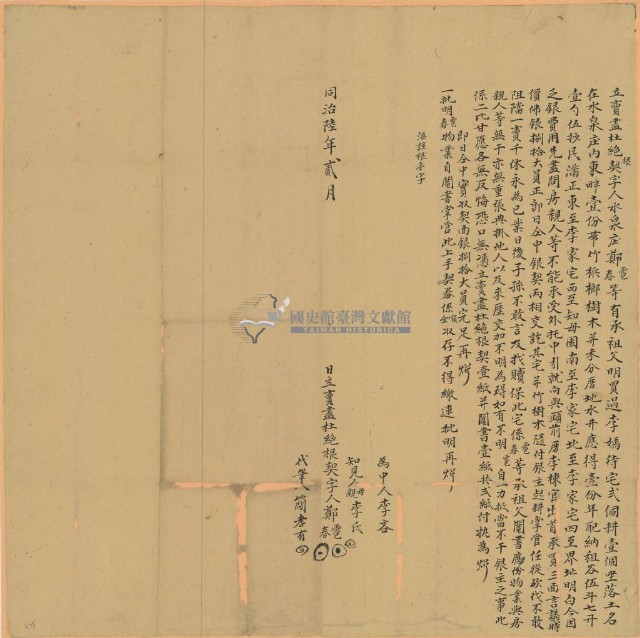 立賣盡杜絕根契字人水泉庄鄭春雹等有承祖父明買過李媽待宅弍個耕壹個坐落土名
在水泉庄內東畔壹份帶竹檳榔樹木并未分厝地水井應得壹份年配納租谷伍斗七升
壹勺伍抄民藩正東至李家宅西至知母園南至李家宅北至李家宅四至界址明白今因
乏銀費用先盡問房親人等不能承受外托中引就向與頭前厝李棟官出首承買三面言議時
價佛銀捌拾大員正即日仝中銀契兩相交訖其宅并竹樹木隨付銀主起耕掌管任從砍伐不敢
阻擋一賣千休永為己業日後子孫不敢言及找贖保此宅係春雹等承祖父鬮書應份物業與房
親人等無干亦無重張典掛他人以及來歷交加不明為碍如有不明春雹自力抵當不干銀主之事此
係二比甘愿各無反悔恐口無憑立賣盡杜絕根契壹紙并鬮書壹紙共弍紙付執為炤
即日仝中實收契面銀捌拾大員完足再炤
一批明春雹物業自鬮書掌管此上手契券係收存不得繳連批明再炤
添註根壹字
同治陸年貳月
為中人李吝
知見人母親李氏
日立賣盡杜絕根契字人鄭春雹
代筆人簡孝有
國史館臺灣文獻館
TAIWAN HISTORICA